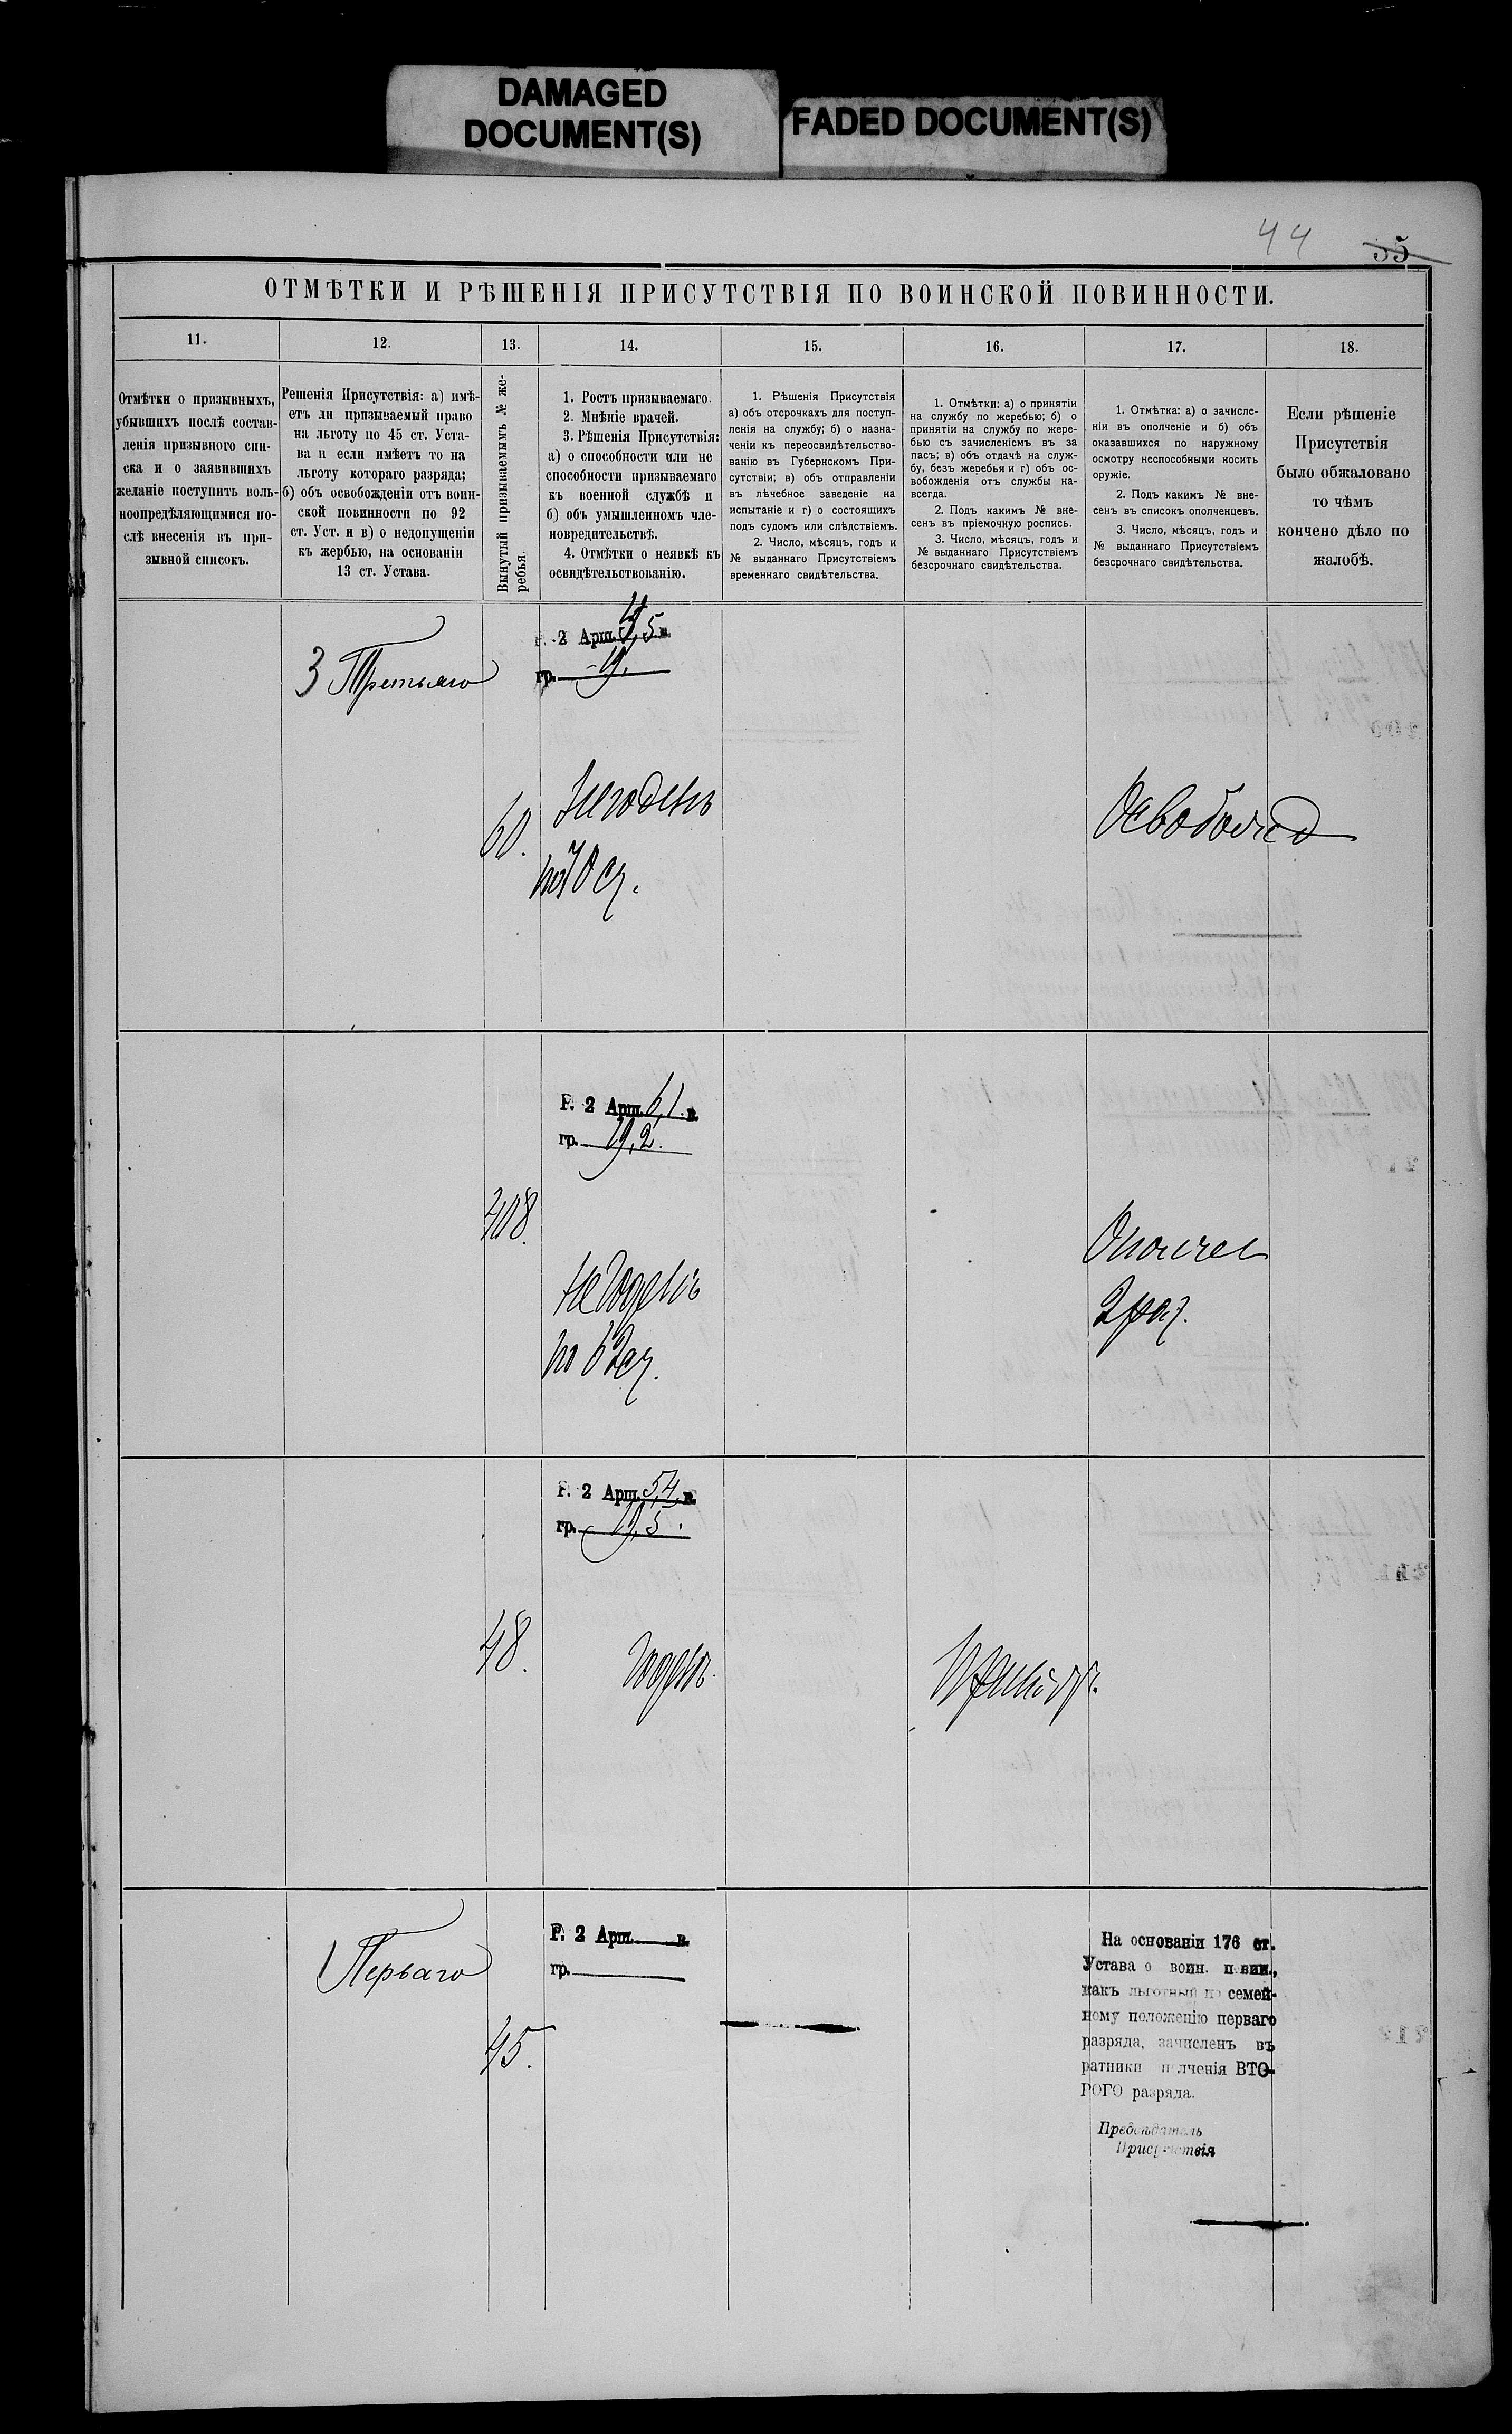 DAMAGED
DOCUMENT(S)
FADED DOCUMENT(S)
44
35
ОТМѢТКИ И РѢШЕНІЯ ПРИСУТСТВІЯ ПО ВОИНСКОЙ ПОВИННОСТИ.
11.
12.
13.
14.
15.
16.
17.
18.
Отмѣтки о призывныхъ,
убывшихъ послѣ состав-
ленія призывного спи-
ска и о заявившихъ
желаніе поступить воль-
ноопредѣляющимися по-
слѣ внесенія въ при-
зывной списокъ.
Решенія Присутствія: а) имѣ-
етъ ли призываемый право
на льготу по 45 ст. Уста-
ва и если имѣетъ то на
льготу котораго разряда;
б) объ освобожденіи отъ воин-
ской повинности по 92
ст. Уст. и в) о недопущеніи
къ жербью, на основаніи
13 ст. Устава.
Вынутый призываемымъ № же-
ребья.
1. Ростъ призываемаго.
2. Мнѣніе врачей.
3. Рѣшенія Присутствія:
а) о способности или не
способности призываемаго
къ военной службѣ и
б) объ умышленномъ чле-
новредительствѣ.
4. Отмѣтки о неявкѣ къ
освидѣтельствованію.
1. Рѣшенія Присутствія
а) объ отсрочкахъ для поступ-
ленія на службу; б) о назна-
ченіи къ переосвидѣтельство-
ванію въ Губернскомъ При-
сутствіи; в) объ отправленіи
въ лѣчебное заведеніе на
испытаніе и г) о состоящихъ
подъ судомъ или слѣдствіемъ.
2. Число, мѣсяцъ, годъ и
№ выданнаго Присутствіемъ
временнаго свидѣтельства.
1. Отмѣтки: а) о принятіи
на службу по жеребью; б) о
принятіи на службу по жере-
бью съ зачисленіемъ въ за
пасъ; в) объ отдачѣ на служ-
бу, безъ жеребья и г) объ ос-
вобожденія отъ службы на-
всегда.
2. Подъ какимъ № вне-
сенъ въ пріемочную роспись.
3. Число, мѣсяцъ, годъ и
№ выданнаго Присутствіемъ
безсрочнаго свидѣтельства.
1. Отмѣтка: а) о зачисле-
ніи въ ополченіе и б) объ
оказавшихся по наружному
осмотру неспособными носить
оружіе.
2. Подъ какимъ № вне-
сенъ въ списокъ ополченцевъ.
3. Число, мѣсяцъ, годъ и
№ выданнаго Присутствіемъ
безсрочнаго свидѣтельства.
Если рѣшеніе
Присутствія
было обжаловано
то чѣмъ
кончено дѣло по
жалобѣ.
3 Третьяго
60.
2 Арш. 5 в.
гр. 19.
Негоденъ
Освобожд
408.
Р. 2 Арш. 6,1 в.
гр. 19,2.
Негоденъ
Ополчен
2 раз.
48.
Р. 2 Арш. 5,4 в.
гр. 19,5.
Годенъ.
Принятъ.
1 Перваго
45.
Р. 2 Арш. в.
гр.
На основаніи 176 ст.
Устава о воин. повин.,
какъ льготный по семей-
ному положенію перваго
разряда, зачисленъ въ
ратники полченія ВТО-
РОГО разряда.
Предсѣдатель
Присутствія